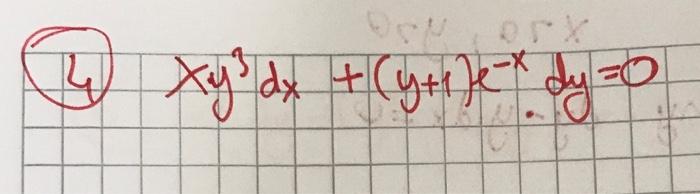 4 xy³ dx + (y+1)e⁻ˣ . dy = 0